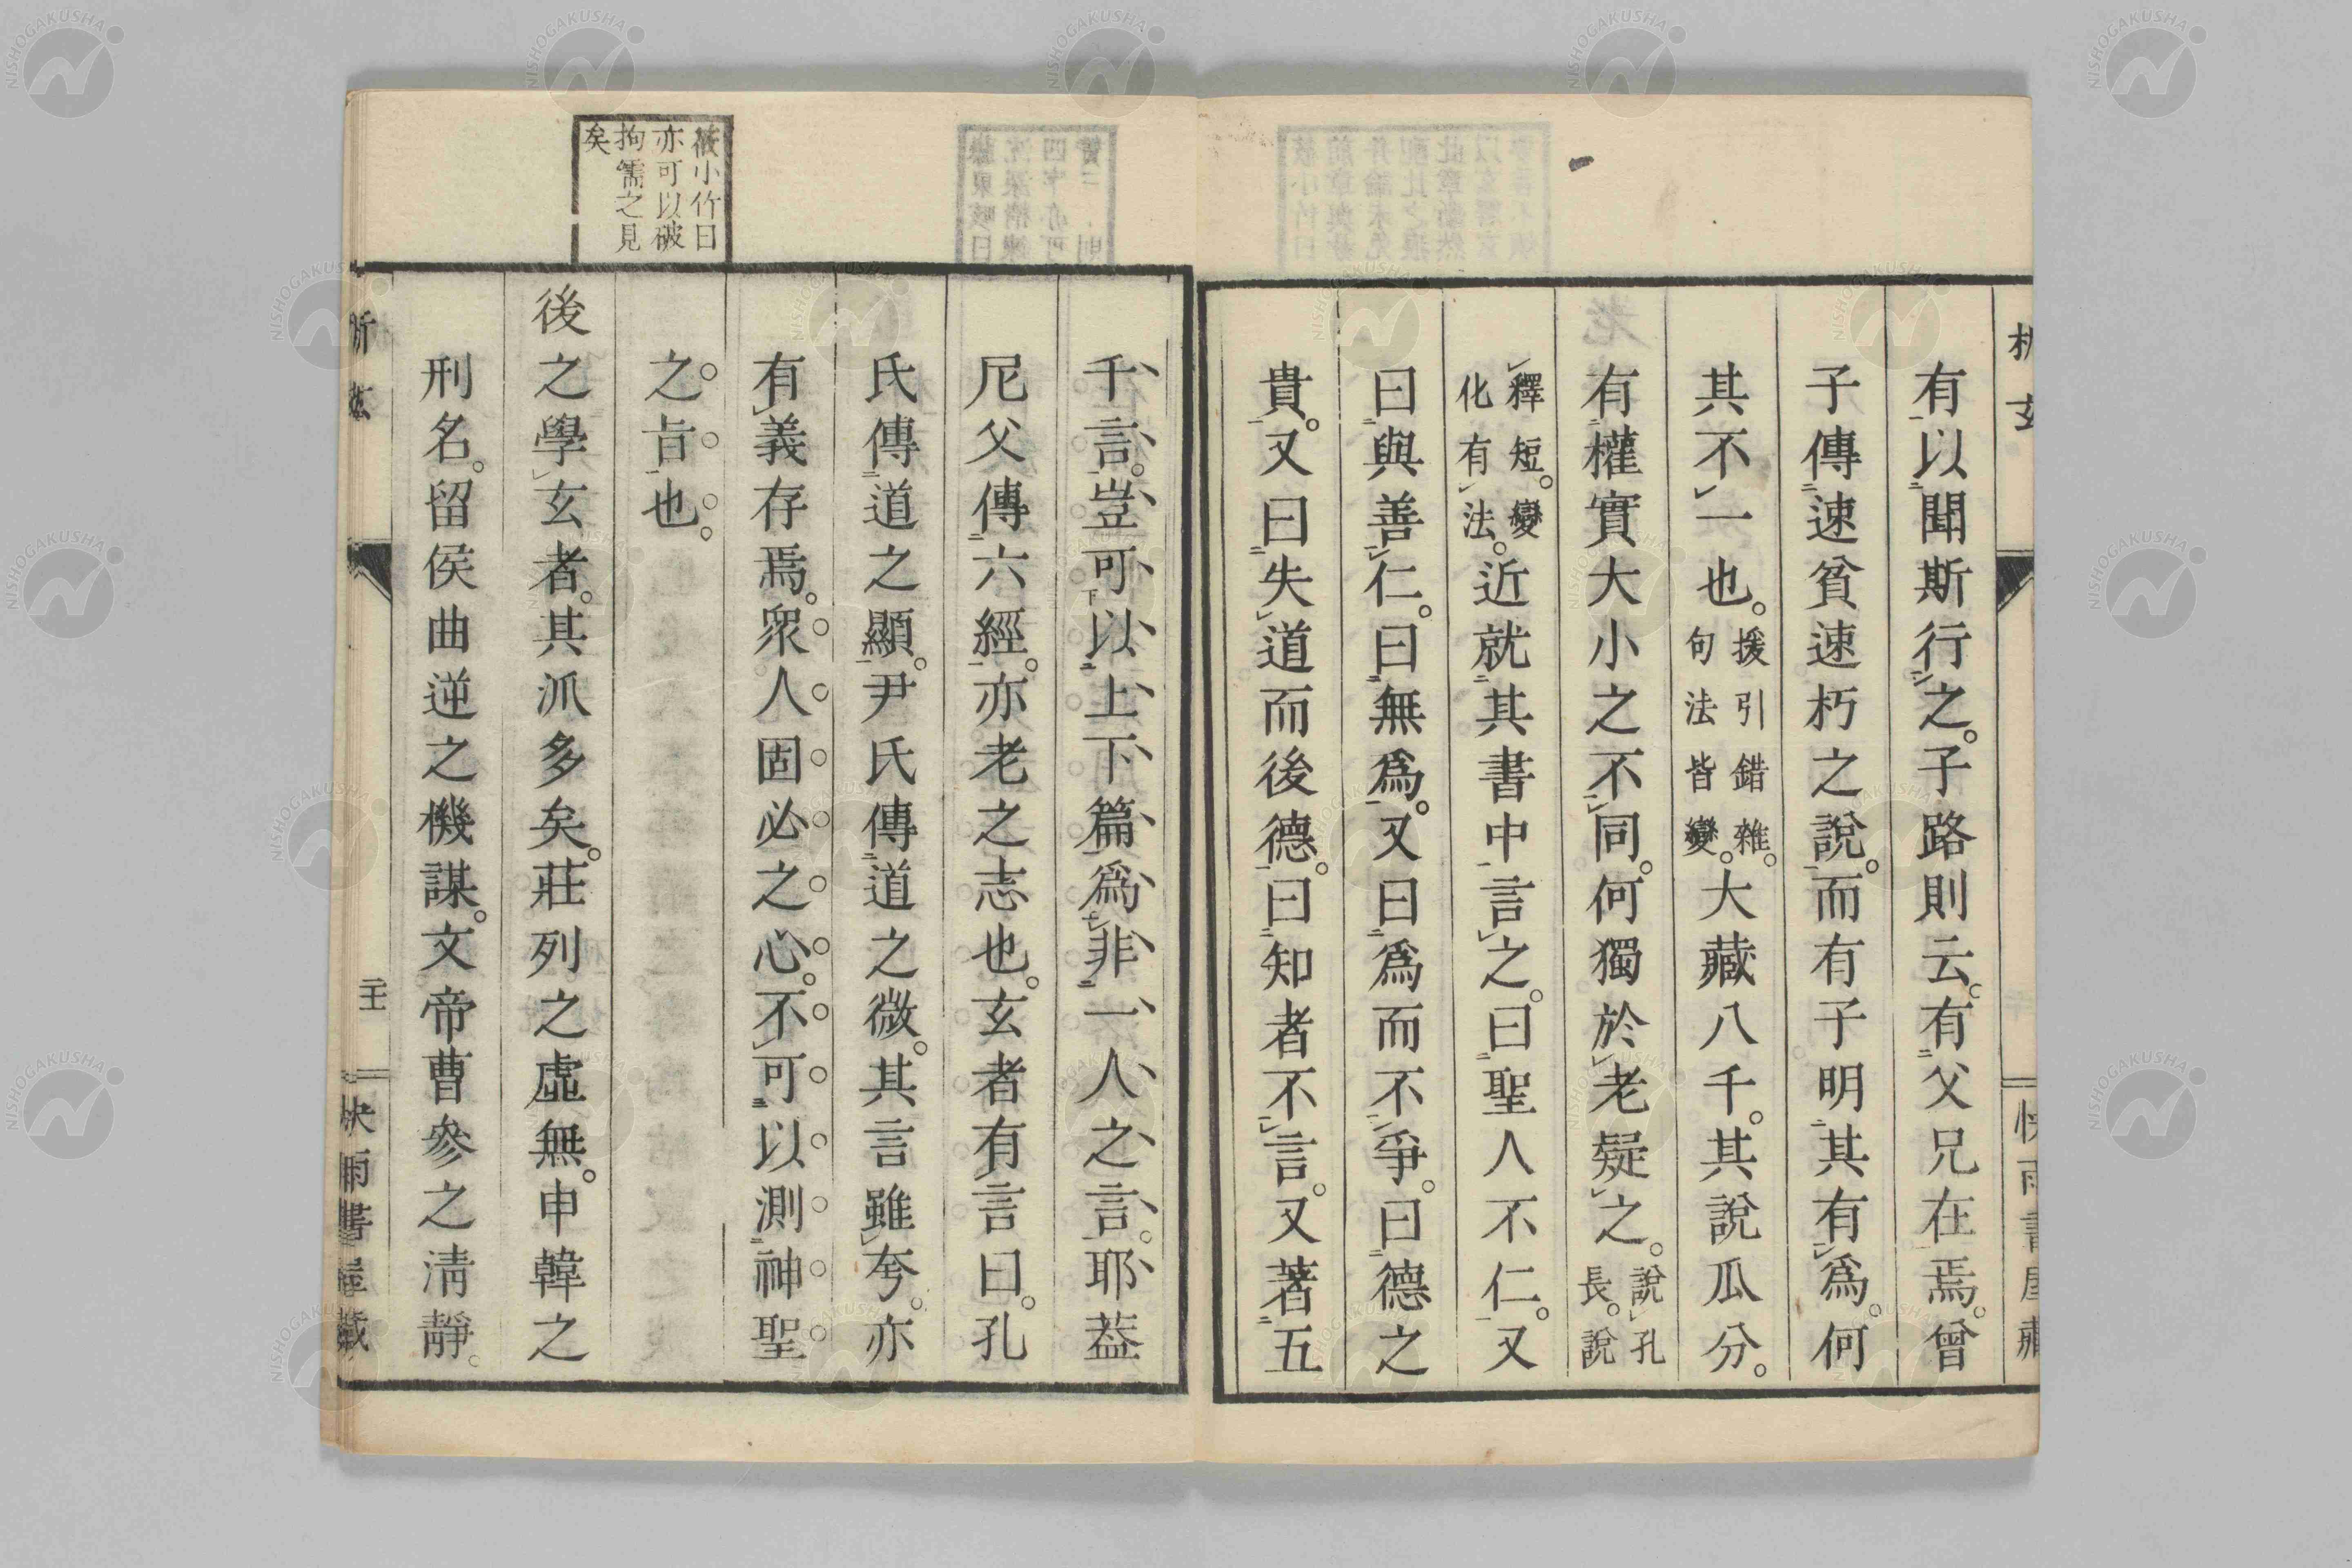 有以聞斯行之。子路則云。有父兄在焉。曾
子傳速貧速朽之說。而有子明其有爲。何
其不一也。援引錯雜。句法皆變。大藏八千。其說瓜分。
有權實大小之不同。何獨於老疑之。說孔長。說
釋短。變化有法。近就其書中言之。曰聖人不仁。又
曰與善仁。曰無爲。又曰爲而不爭。曰德之
貴。又曰失道而後德。曰知者不言。又著五
千言。豈可以上下篇爲非一人之言。耶葢
尼父傳六經。亦老之志也。玄者有言曰。孔
氏傳道之顯。尹氏傳道之微。其言雖夸。亦
有義存焉。衆人固必之心。不可以測神聖
之旨也。
筱小竹曰
亦可以破
拘儒之見
矣
後之學玄者。其派多矣。莊列之虛無。申韓之
刑名。留侯曲逆之機謀。文帝曹參之淸靜。
快雨書屋藏